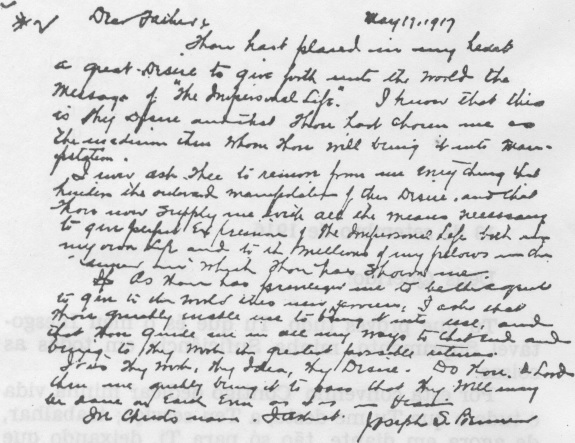 Dear Father, May 17, 1917
Thou hast placed in my heart
a great Desire to give forth unto the World the
Message of "The Impersonal Life". I know that this
is Thy Desire and that Thou hast chosen me as
the medium thru whom Thou will bring it into Mani-
festation.
I now ask Thee to remove from me everything that
hinders the outward manifestation of this Desire, and that
Thou now supply me with all the means necessary
to give perfect Expression of the Impersonal Life both in
my own life and to the millions of my fellows in the
which Thou has shown me.
As Thou has privileged me to be the agent
to give to the World this new, I ask that
Thou quickly enable me to bring it into use, and
that Thou guide me in that I
bring to Thy Work the greatest possible returns.
It is Thy Work, Thy Idea, Thy Desire. Do Thou, O Lord
thru me quickly bring it to pass that Thy Will may
be in Earth as it is in Heaven.
In Christ's name I ask it. Joseph S. Benner